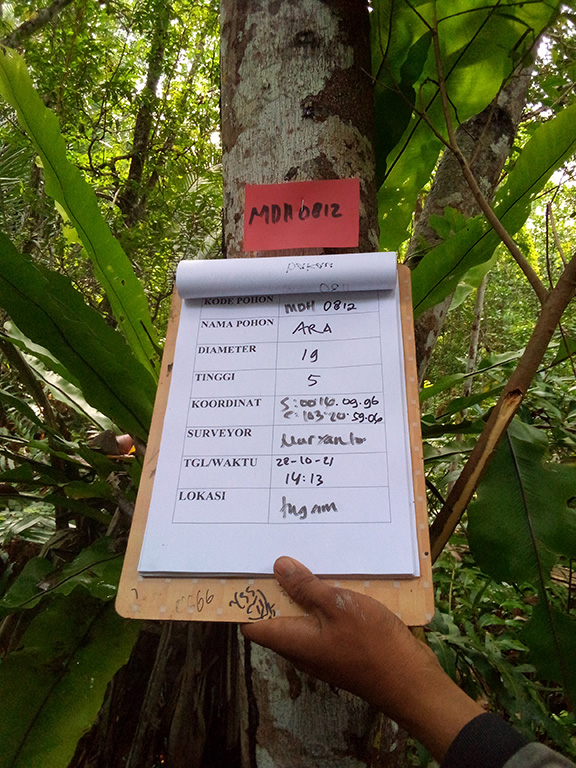 MDH 0812
KODE POHON MDH 0812
NAMA POHON ARA
DIAMETER 19
TINGGI 5
KOORDINAT S:0016.09.96
E:103.20.59.06
SURVEYOR Maryanto
TGL/WAKTU 22-10-21
14:13
LOKASI